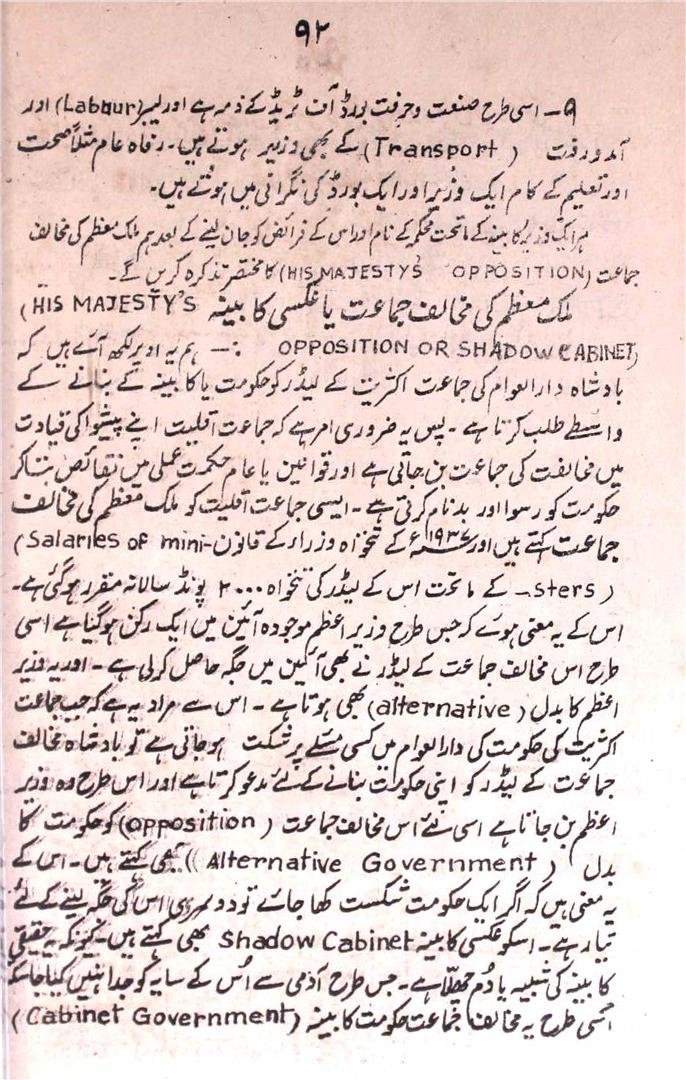 ۹۲
۹۔ اسی طرح صنعت و حرفت بورڈ آف ٹریڈ کے ذمہ ہے اور لیبر (Labour) اور
آمد و رفت (Transport) کے بھی وزیر ہوتے ہیں۔ رفاہ عام مثلاً صحت
اور تعلیم کے کام ایک وزیر اور ایک بورڈ کی نگرانی میں ہوتے ہیں۔
ہر ایک وزیر کابینہ کے ماتحت محکمہ کے نام اور اس کے فرائض کو جان لینے کے بعد ہم ملک معظم کی مخالف
جماعت (HIS MAJESTY'S OPPOSITION) کا مختصر تذکرہ کریں گے۔
ملک معظم کی مخالف جماعت یا عکسی کابینہ (HIS MAJESTY'S
OPPOSITION OR SHADOW CABINET) :— ہم یہ اوپر لکھ آئے ہیں کہ
بادشاہ دارالعوام کی جماعت اکثریت کے لیڈر کو حکومت یا کابینہ کے بنانے کے
واسطے طلب کرتا ہے۔ پس یہ ضروری امر ہے کہ جماعت اقلیت اپنے پیشوا کی قیادت
میں مخالفت کی جماعت بن جاتی ہے اور قوانین یا عام حکمت عملی میں نقائص بتا کر
حکومت کو رسوا اور بدنام کرتی ہے۔ ایسی جماعت اقلیت کو ملک معظم کی مخالف
جماعت کہتے ہیں اور ۱۹۳۷ء کے تنخواہ وزراء کے قانون (Salaries of mini-
sters) کے ماتحت اس کے لیڈر کی تنخواہ ۲۰۰۰ پونڈ سالانہ مقرر ہو گئی ہے۔
اس کے یہ معنی ہوئے کہ جس طرح وزیر اعظم موجودہ آئین میں ایک رکن ہو گیا ہے اسی
طرح اس مخالف جماعت کے لیڈر نے بھی آئین میں جگہ حاصل کر لی ہے۔ اور یہ وزیر
اعظم کا بدل (alternative) بھی ہوتا ہے۔ اس سے مراد یہ ہے کہ جب جماعت
اکثریت کی حکومت کی دارالعوام میں کسی مسئلے پر شکست ہو جاتی ہے تو بادشاہ مخالف
جماعت کے لیڈر کو اپنی حکومت بنانے کے لئے مدعو کرتا ہے اور اس طرح وہ وزیر
اعظم بن جاتا ہے اسی لئے اس مخالف جماعت (opposition) کو حکومت کا
بدل (Alternative Government) بھی کہتے ہیں۔ اس کے
یہ معنی ہیں کہ اگر ایک حکومت شکست کھا جائے تو دوسری اس کی جگہ لینے کے لئے
تیار ہے۔ اسکو عکسی کابینہ Shadow Cabinet بھی کہتے ہیں۔ کیونکہ یہ حقیقی
کابینہ کی شبیہ یا دُم چھلّا ہے۔ جس طرح آدمی سے اُس کے سایہ کو جدا نہیں کیا جا سکتا
اُسی طرح یہ مخالف جماعت حکومت کابینہ (Cabinet Government)